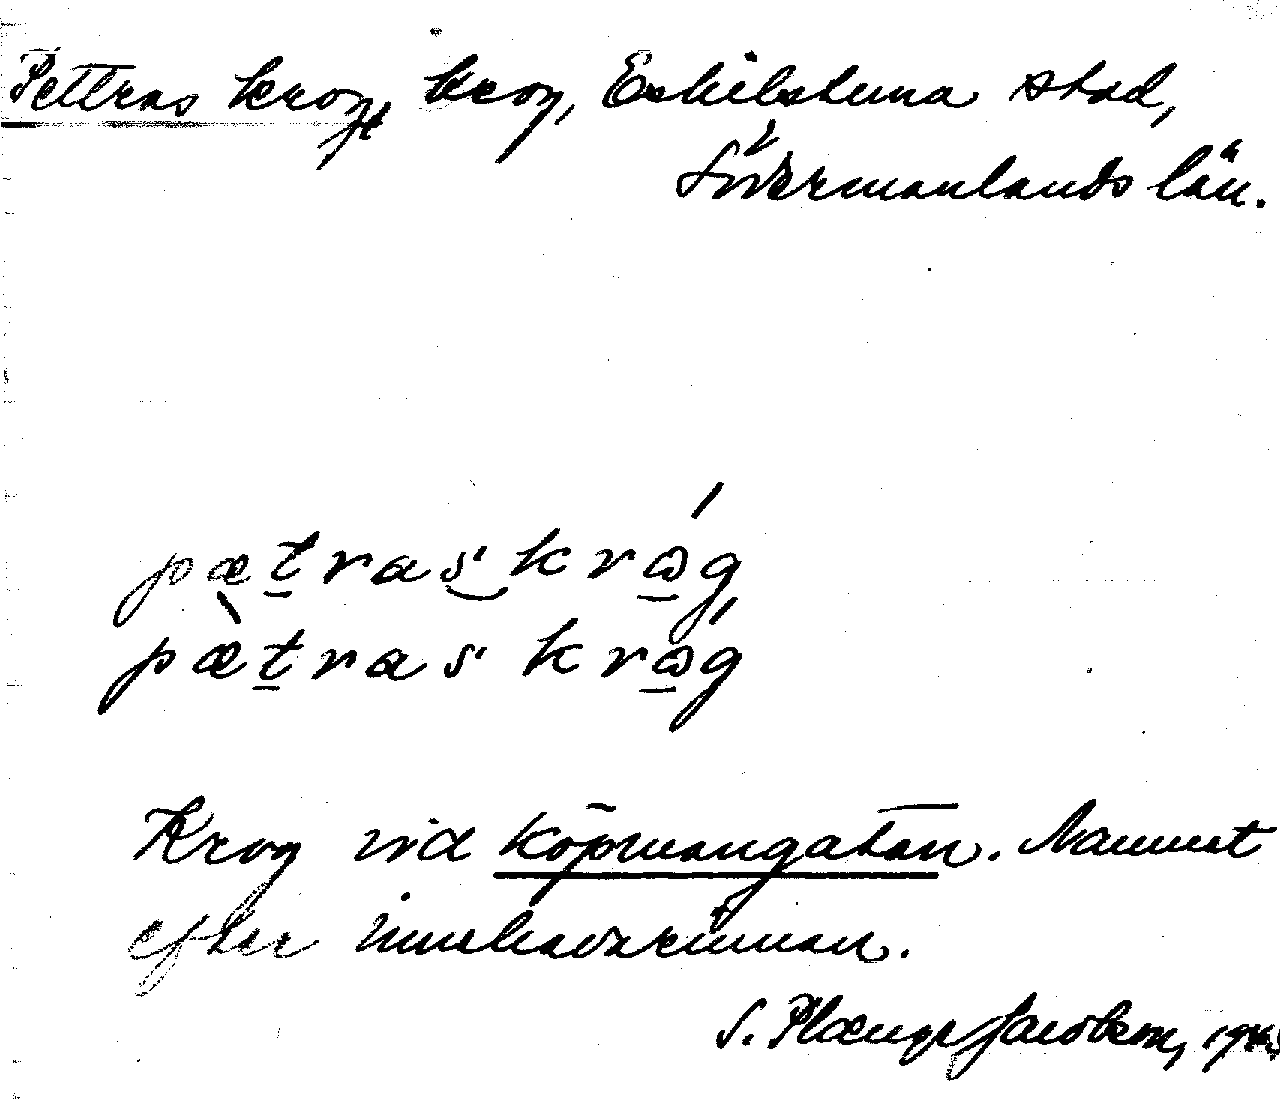 Pettras krog, krog, Eskilstuna stad,
Södermanlands län.
pætras krɷg
pætras krɷg
Krog vid Köpmangatan. Namnet
efter innehavarinnan.
S. Plænge Jacobson,